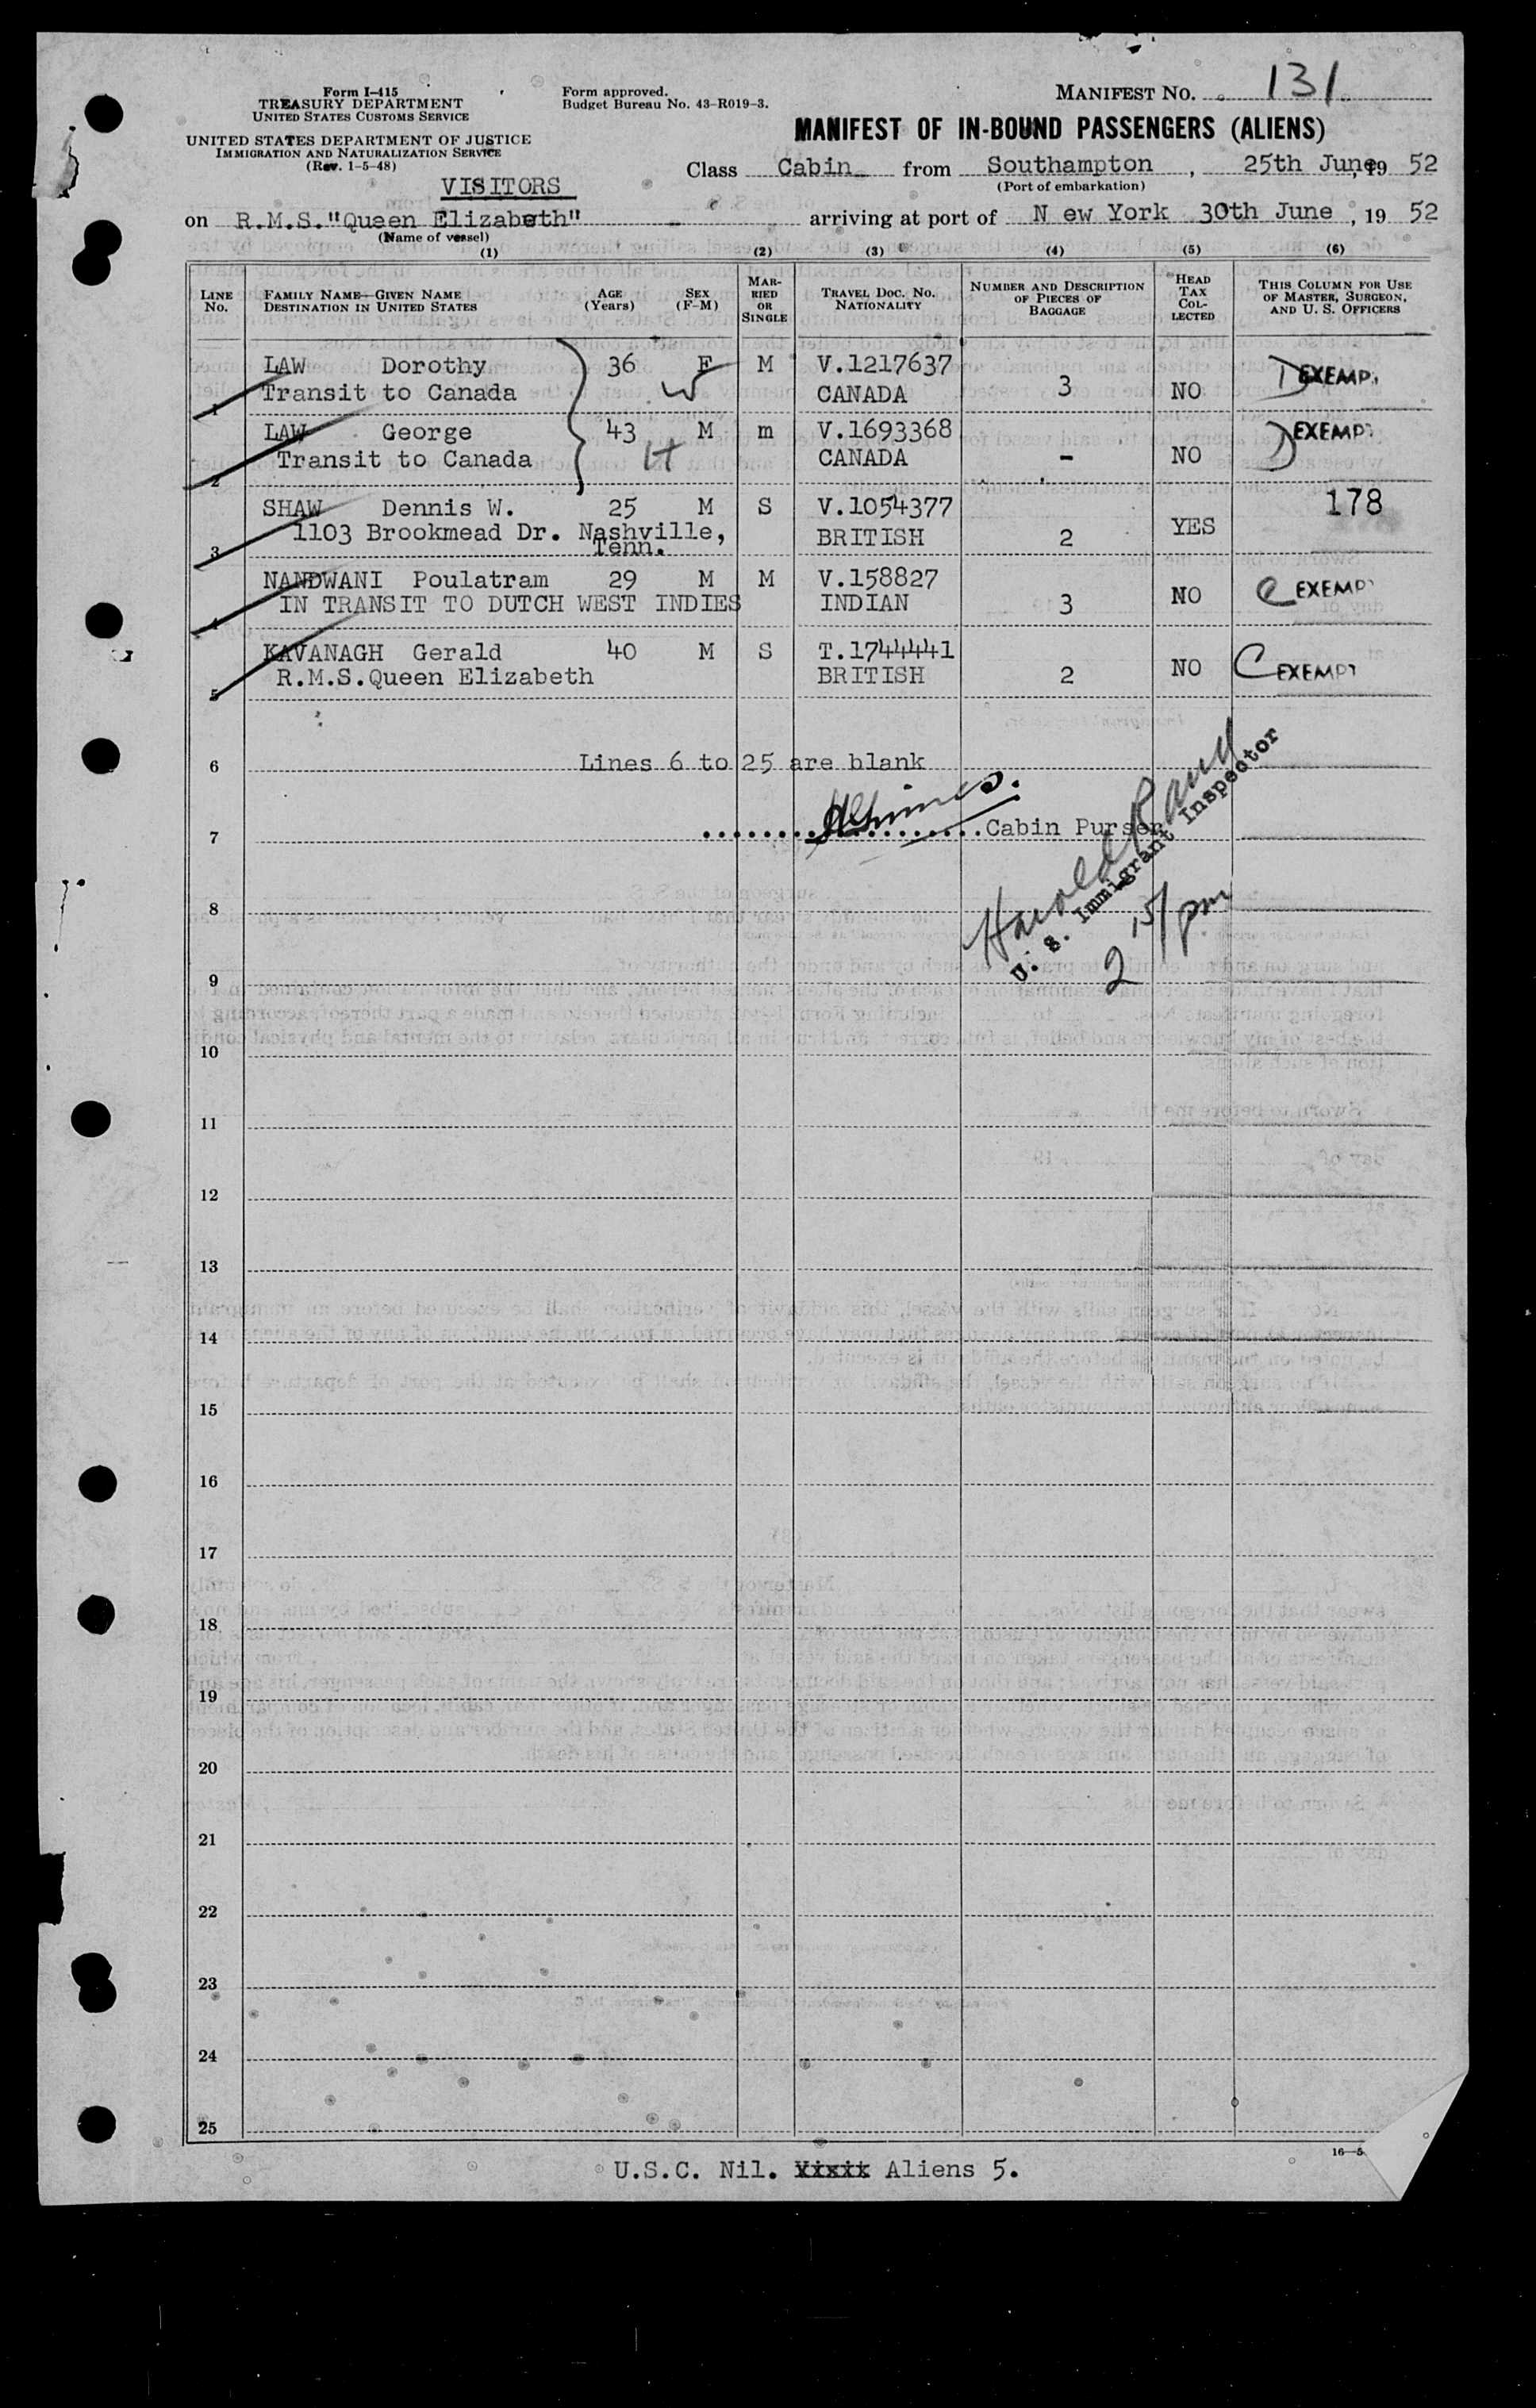 Form I-415
TREASURY DEPARTMENT
UNITED STATES CUSTOMS SERVICE
UNITED STATES DEPARTMENT OF JUSTICE
IMMIGRATION AND NATURALIZATION SERVICE
(Rev. 1-5-48)
Form approved.
Budget Bureau No. 43-R019-3.
MANIFEST NO. 131
MANIFEST OF IN-BOUND PASSENGERS (ALIENS)
Class Cabin from Southampton, 25th June, 19 52
(Port of embarkation)
VISITORS
on R.M.S."Queen Elizabeth" arriving at port of N ew York 30th June, 19 52
(Name of vessel)
(1) (2) (3) (4) (5) (6)
LINE No. FAMILY NAME—GIVEN NAME DESTINATION IN UNITED STATES AGE (Years) SEX (F-M) MARRIED OR SINGLE TRAVEL DOC. NO. NATIONALITY NUMBER AND DESCRIPTION OF PIECES OF BAGGAGE HEAD TAX COLLECTED THIS COLUMN FOR USE OF MASTER, SURGEON, AND U. S. OFFICERS
LAW Dorothy 36 F M V.1217637
1 Transit to Canada W CANADA 3 NO D EXEMPT
LAW George 43 M m V.1693368
2 Transit to Canada H CANADA - NO D EXEMPT
SHAW Dennis W. 25 M S V.1054377 178
3 1103 Brookmead Dr. Nashville, Tenn. BRITISH 2 YES
NANDWANI Poulatram 29 M M V.158827
4 IN TRANSIT TO DUTCH WEST INDIES INDIAN 3 NO C EXEMPT
KAVANAGH Gerald 40 M S T.1744441
5 R.M.S.Queen Elizabeth BRITISH 2 NO C EXEMPT
6 Lines 6 to 25 are blank
7 Cabin Purser
Harold
U. S. Immigrant Inspector
2 15/pm
8
9
10
11
12
13
14
15
16
17
18
19
20
21
22
23
24
25
16—5
U.S.C. Nil. Aliens 5.